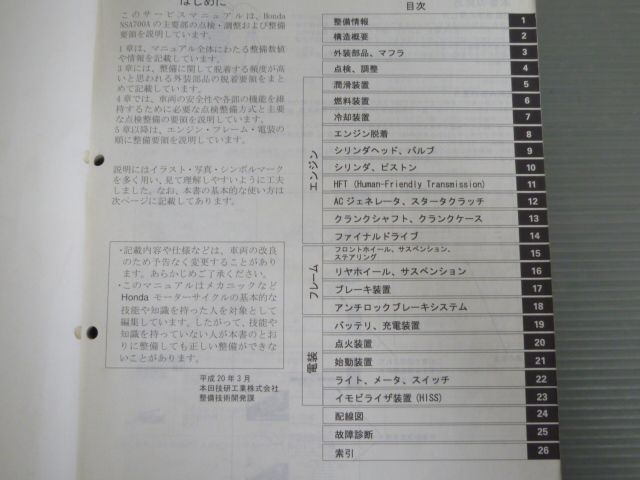 はじめに
このサービスマニュアルは、Honda
NSA700Aの主要部の点検・調整および整備
要領を説明しています。
1章は、マニュアル全体にわたる整備数値
や情報を記載しています。
3章には、整備に関して脱着する頻度が高
いと思われる外装部品の脱着要領をまと
めて記載しています。
4章では、車両の安全性や各部の機能を維
持するために必要な点検整備方式と主要
な点検整備の要領を説明しています。
5章以降は、エンジン・フレーム・電装の
順に整備要領を説明しています。
説明にはイラスト・写真・シンボルマーク
を多く用い、見て理解しやすいように工夫
しました。なお、本書の基本的な使い方は
次ページに記載してあります。
・記載内容や仕様などは、車両の改良
のため予告なく変更することがあり
ます。あらかじめご了承ください。
・このマニュアルはメカニックなど
Honda モーターサイクルの基本的な
技能や知識を持った人を対象として
編集しています。したがって、技能や
知識を持っていない人が本書のとお
りに整備しても正しい整備ができな
いことがあります。
平成20年3月
本田技研工業株式会社
整備技術開発課
目次
整備情報 1
構造概要 2
外装部品、マフラ 3
点検、調整 4
エンジン
潤滑装置 5
燃料装置 6
冷却装置 7
エンジン脱着 8
シリンダヘッド、バルブ 9
シリンダ、ピストン 10
HFT (Human-Friendly Transmission) 11
ACジェネレータ、スタータクラッチ 12
クランクシャフト、クランクケース 13
ファイナルドライブ 14
フレーム
フロントホイール、サスペンション、
ステアリング 15
リヤホイール、サスペンション 16
ブレーキ装置 17
アンチロックブレーキシステム 18
電装
バッテリ、充電装置 19
点火装置 20
始動装置 21
ライト、メータ、スイッチ 22
イモビライザ装置(HISS) 23
配線図 24
故障診断 25
索引 26